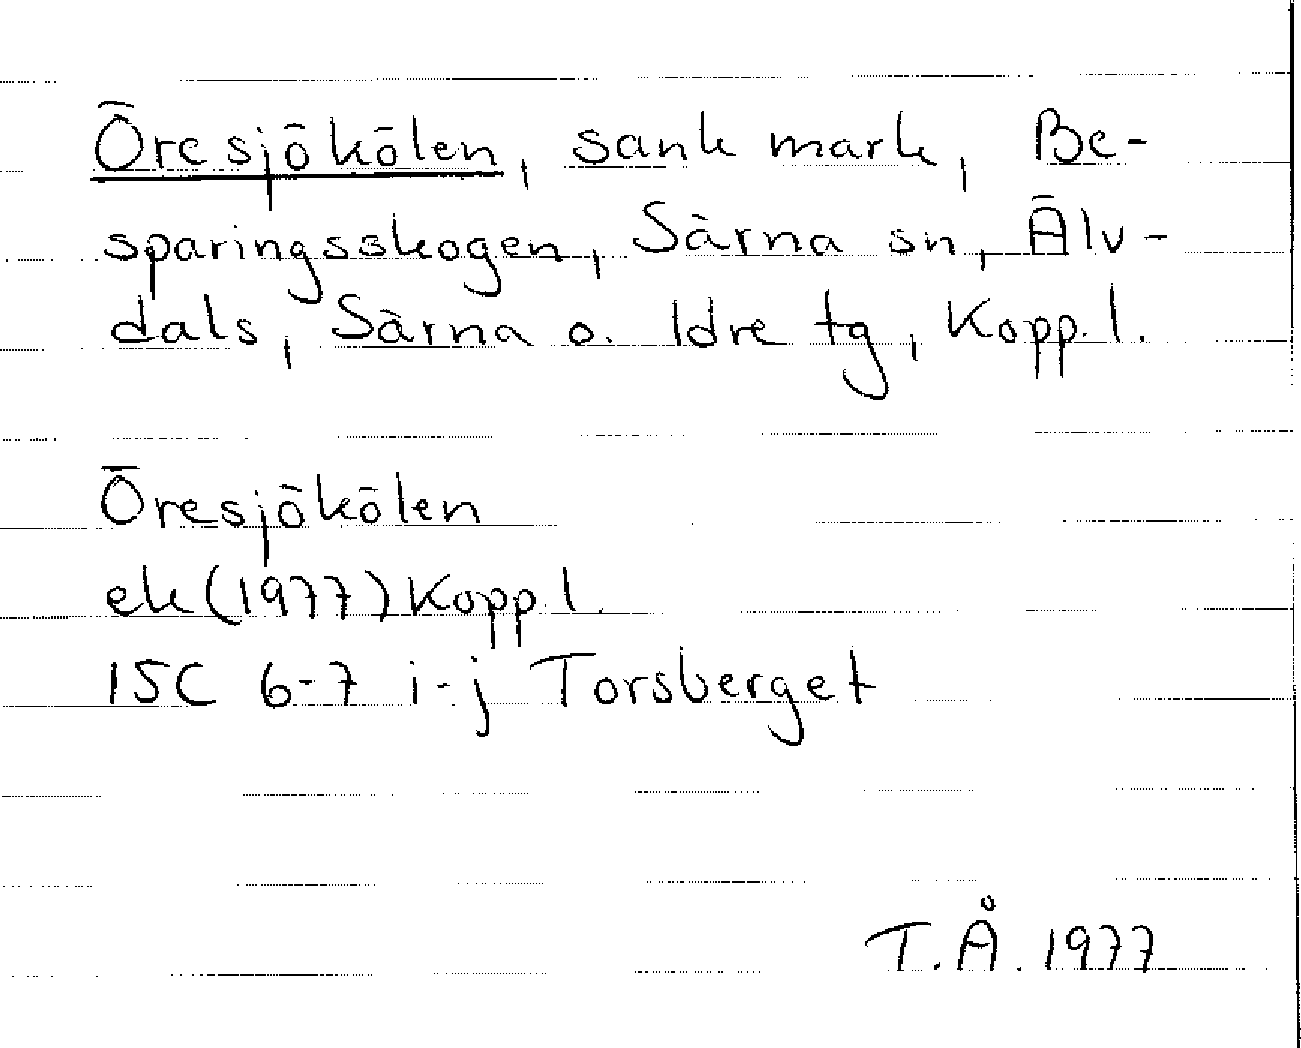 Öresjökölen, sank mark, Be-
sparingsskogen, Särna sn, Älv-
dals, Särna o. Idre tg, Kopp. l.
Öresjökölen
ek (1977) Kopp. l.
15C 6-7 i-j Torsberget
T. Å. 1977